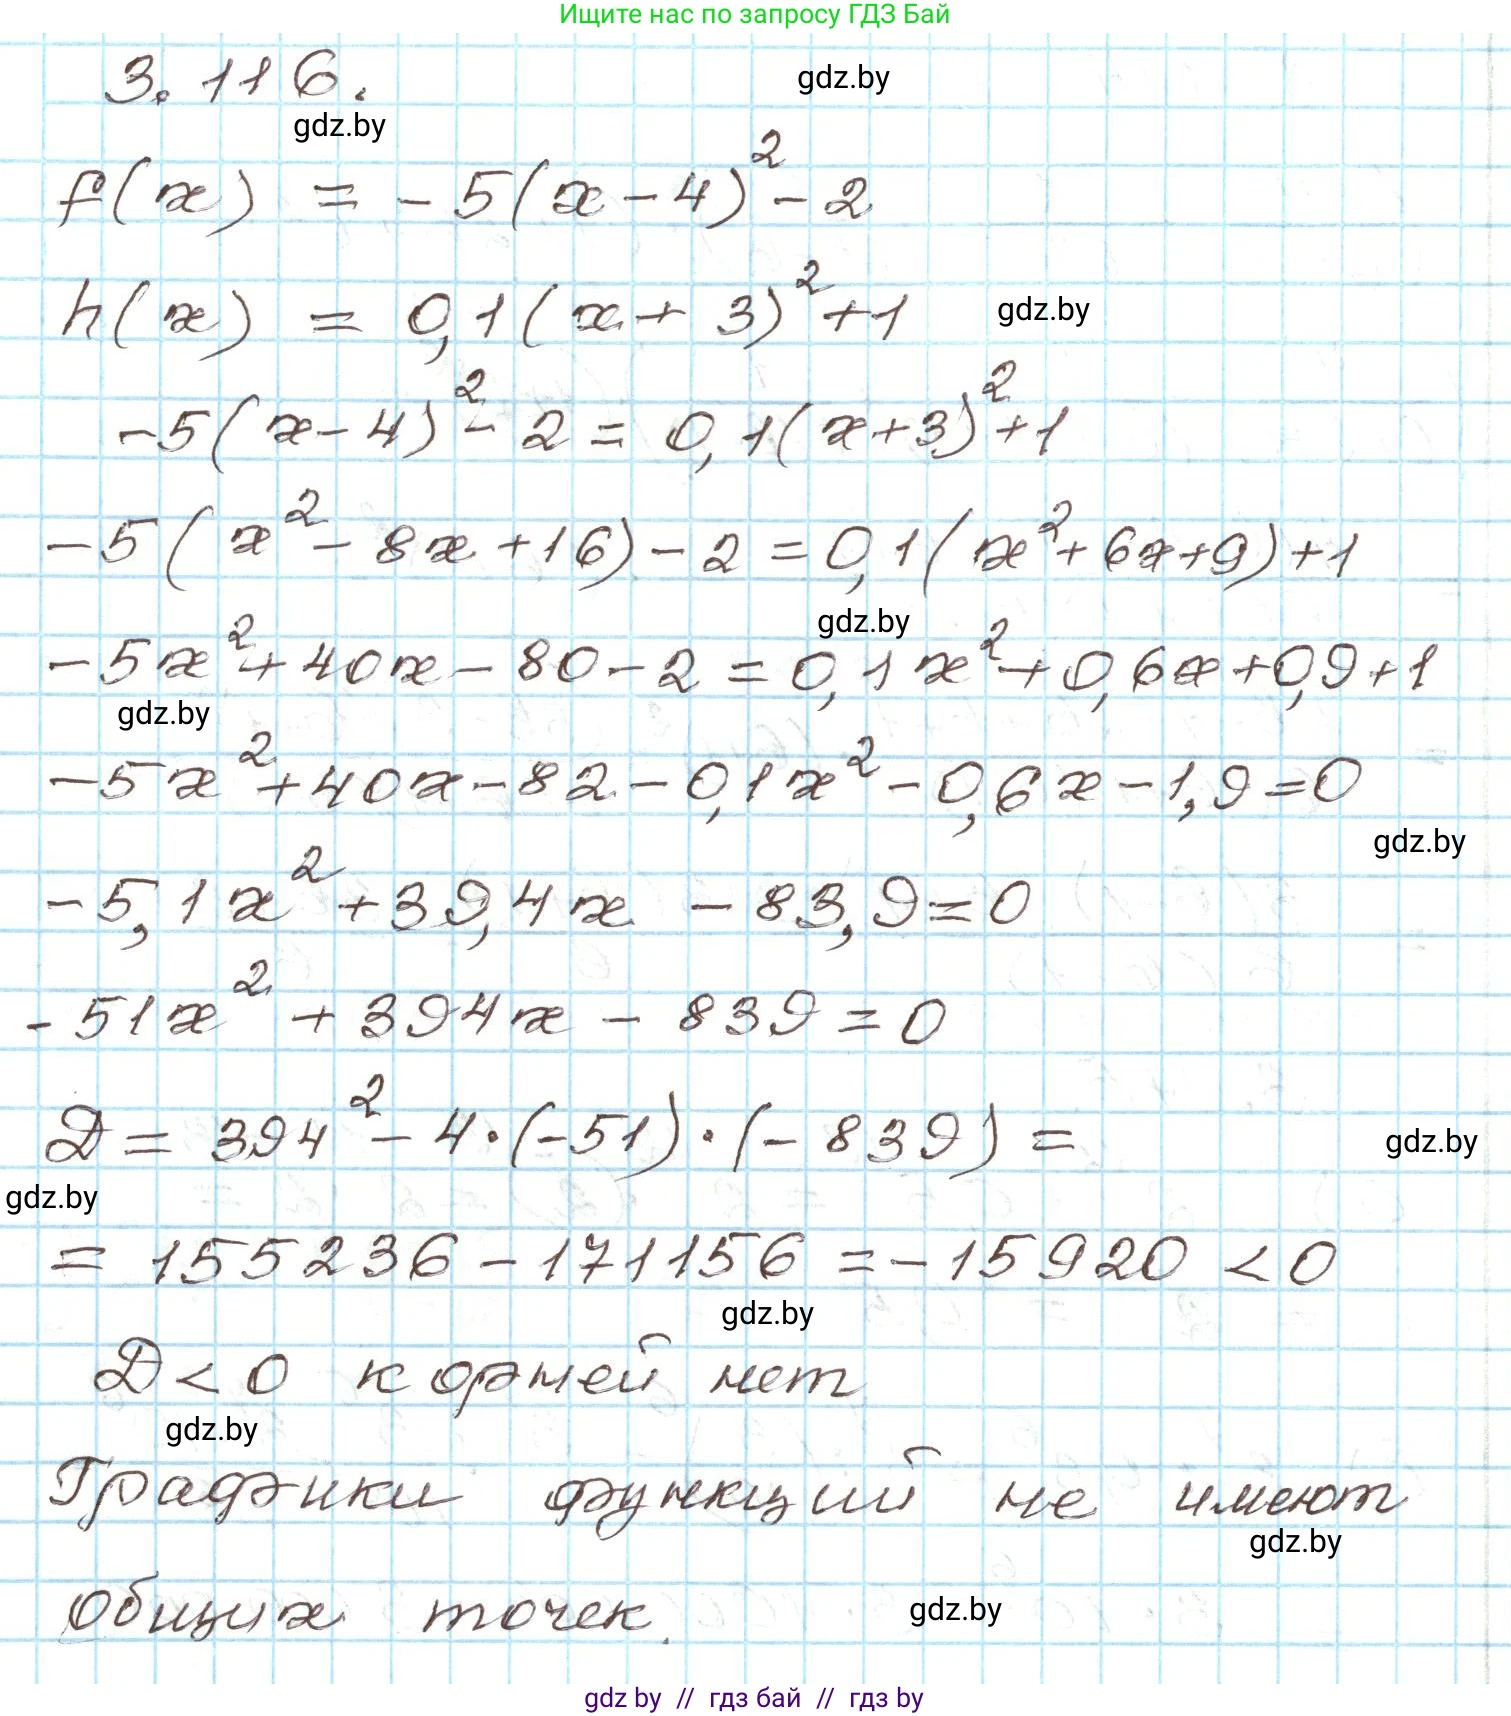 Ищите нас по запросу ГДЗ Бай
3.116.
gdz.by
gdz.by
f(x) = -5(x-4)²-2
h(x) = 0,1(x+3)²+1
gdz.by
-5(x-4)²-2=0,1(x+3)²+1
-5(x²-8x+16)-2=0,1(x²+6x+9)+1
gdz.by
-5x²+40x-80-2=0,1x²+0,6x+0,9+1
gdz.by
-5x²+40x-82-0,1x²-0,6x-1,9=0
gdz.by
-5,1x²+39,4x-83,9=0
-51x²+394x-839=0
D=394²-4·(-51)·(-839)=
gdz.by
gdz.by
=155236-171156=-15920<0
gdz.by
D<0 корней нет
gdz.by
Графики функций не имеют
gdz.by
общих точек.
gdz.by
gdz by // гдз бай // гдз by